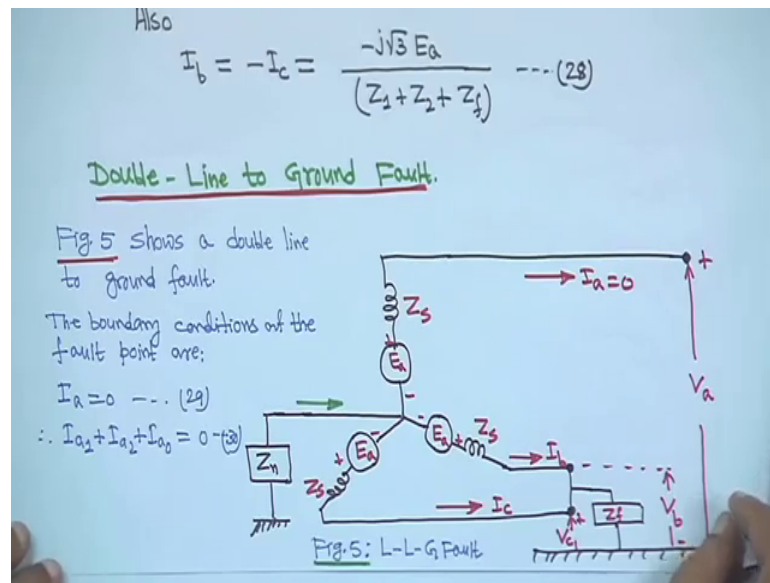 Also
I_b = -I_c = -j√3 E_a / (Z_1+Z_2+Z_f) ----(28)
Double-Line to Ground Fault.
Fig. 5 shows a double line
to ground fault.
The boundary conditions at the
fault point are;
I_a=0 --.. (29)
∴ I_a1+I_a2+I_a0 = 0-(30)
I_a=0
+
Z_s
+
E_a
-
V_a
-
E_a
+
Z_s
I_b
-
E_a
+
Z_s
I_c
Z_n
+
V_c
Z_f
V_b
-
Fig. 5: L-L-G Fault